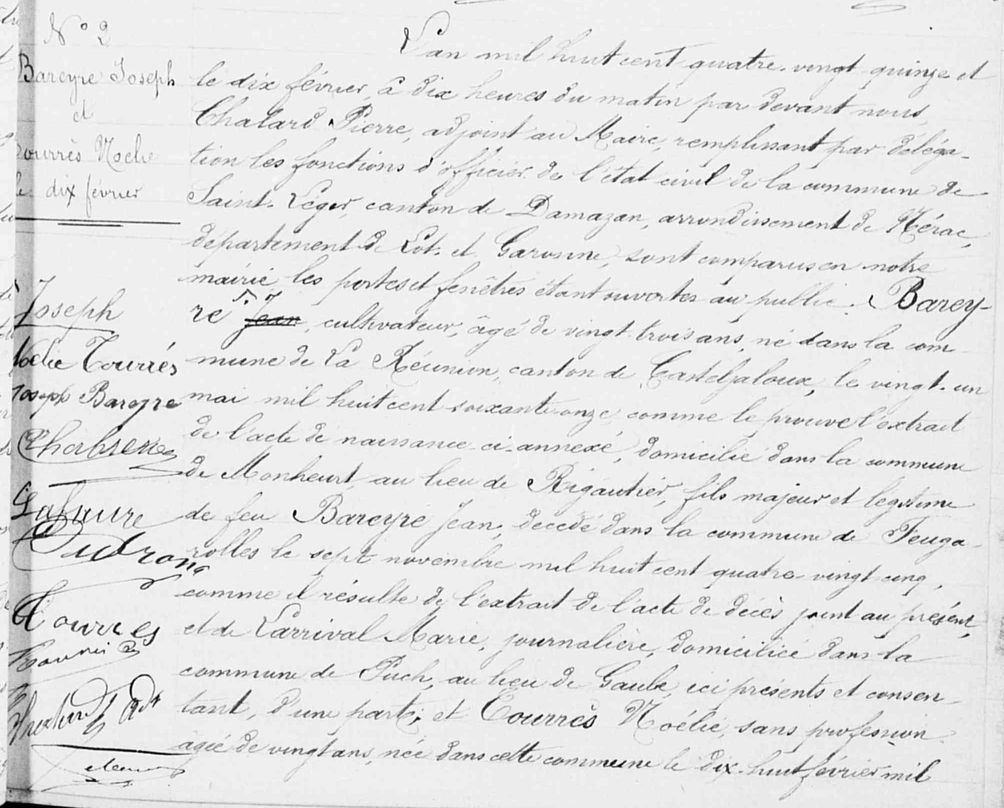 N° 2
Bareyre Joseph
et
Tourrès Noélie
le
dix février
Joseph
Noélie Tourrés
Joseph Bareyre
Tourres
L'an mil huit cent quatre-vingt quinze et
le dix février, à dix heures du matin par devant nous,
Chalard Pierre, adjoint au Maire, remplissant par déléga-
tion les fonctions d'officier de l'état civil de la commune de
Saint-Léger, canton de Damazan, arrondissement de Nérac,
département de Lot-et-Garonne, sont comparus en notre
mairie, les portes et fenêtres étant ouvertes au public. Barey-
re Jean, cultivateur, âgé de vingt-trois ans, né dans la com-
mune de La Réunion, canton de Casteljaloux, le vingt-un
mai mil huit cent soixante-onze, comme le prouve l'extrait
de l'acte de naissance ci-annexé, domicilié dans la commune
de Monheurt au lieu de Rigautier, fils majeur et légitime
de feu Bareyre Jean, décédé dans la commune de Feuga-
rolles le sept novembre mil huit cent quatre-vingt cinq,
comme il résulte de l'extrait de l'acte de décès joint au présent,
et de Larrival Marie, journalière, domiciliée dans la
commune de Puch, au lieu de Gaube, ici présents et consen-
tant, d'une part; et Tourrès Noélie, sans profession
agée de vingt ans, née dans cette commune le dix-huit février mil